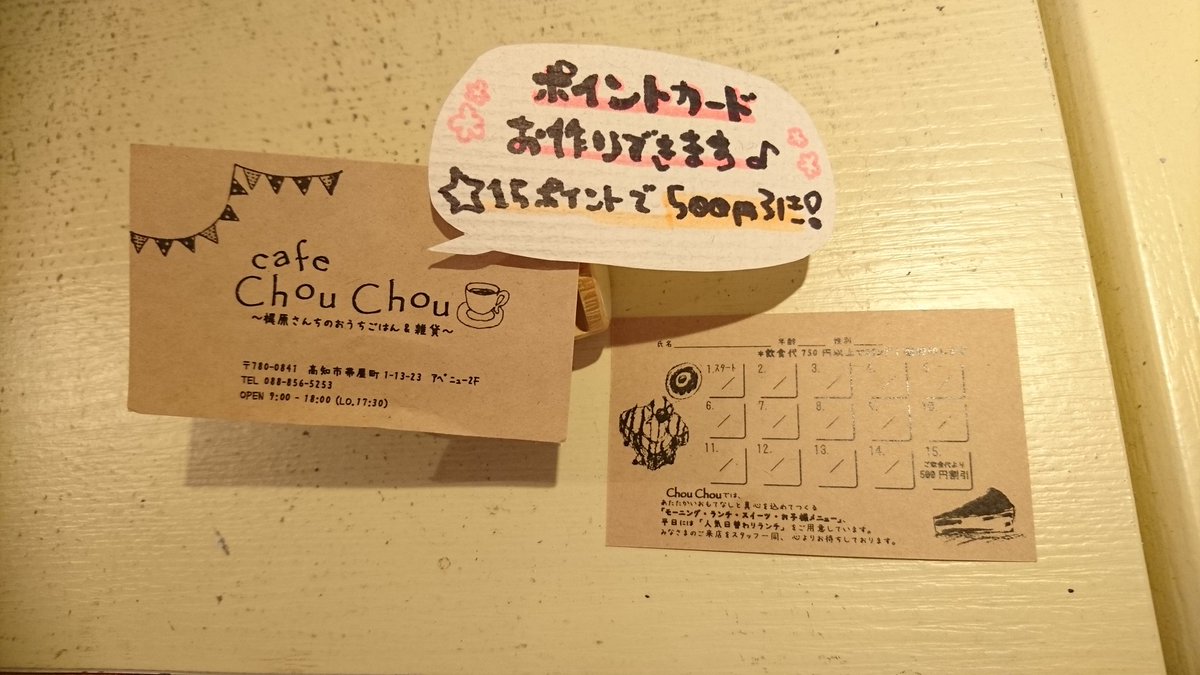 ポイントカード
お作りできます♪
☆15ポイントで500円引に!
cafe
Chou Chou
〜梶原さんちのおうちごはん&雑貨〜
〒780-0841 高知市帯屋町1-13-23 アベニュー2F
TEL 088-856-5253
OPEN 9:00 - 18:00 (LO.17:30)
氏名 年齢 性別
*飲食代750円以上で
1.スタート 2. 3. 4. 5.
6. 7. 8. 9. 10.
11. 12. 13. 14. 15.
ご飲食代より
500円割引
Chou Chouでは、
あたたかいおもてなしと真心を込めてつくる
「モーニング・ランチ・スイーツ・お子様メニュー」、
平日には「人気日替わりランチ」をご用意しています。
みなさまのご来店をスタッフ一同、心よりお待ちしております。